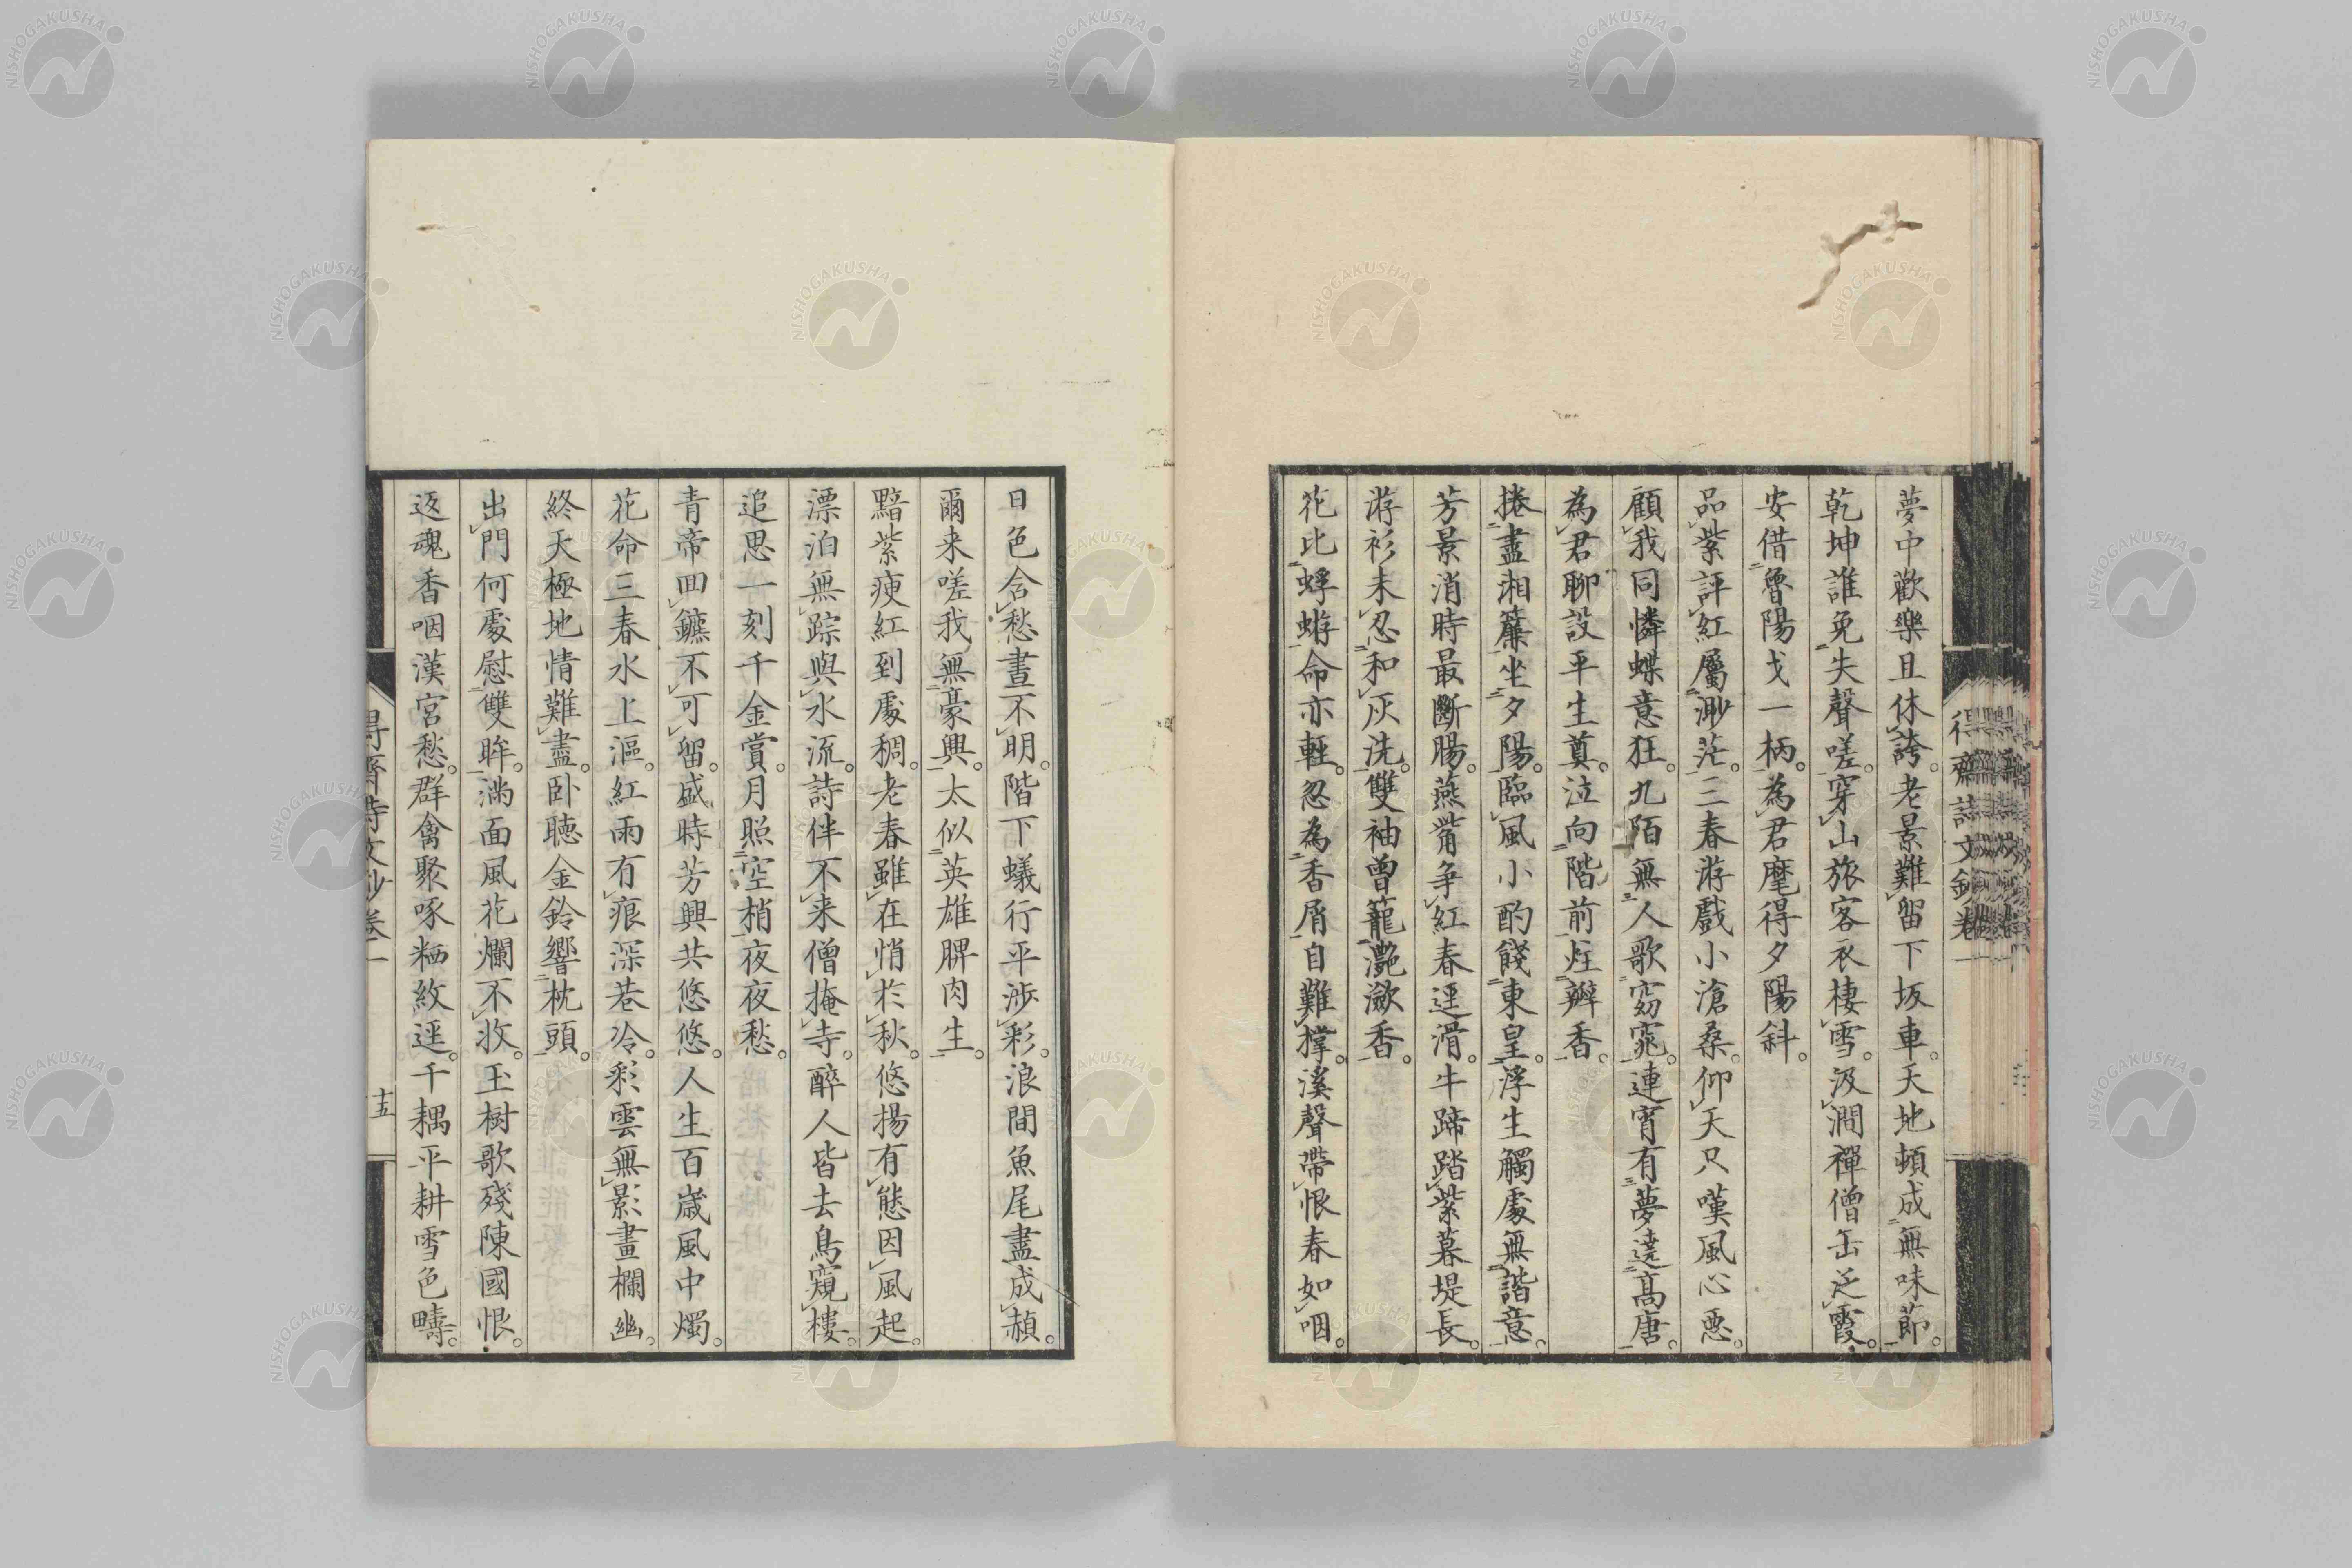 夢中歡樂且休誇。老景難留下坂車。天地頓成無味莭。
乾坤誰免失聲嗟。穿山旅客衣棲雪。汲澗禪僧缶泛霞。
安借魯陽戈一柄。為君麾得夕陽斜。
品紫評紅屬渺茫。三春游戲小滄桑。仰天只嘆風心悪。
顧我同憐蝶意狂。九陌無人歌窈窕。連宵有夢遶髙唐。
為君聊設平生奠。泣向階前炷瓣香。
捲盡湘簾坐夕陽。臨風小酌餞東皇。浮生觸處無諧意。
芳景消時最斷腸。燕觜争紅春逕滑。牛蹄踏紫暮堤長。
游衫未忍和灰洗。雙袖曾籠灔瀲香。
花比蜉蝣命亦輕。忽為香屑自難撑。溪聲帶恨春如咽。
日色含愁晝不明。階下蟻行平渉彩。浪間魚尾盡成赬。
爾来嗟我無豪興。太似英雄脾肉生。
黯紫瘐紅到處稠。老春雖在悄於秋。悠揚有態因風起。
漂泊無踪與水流。詩伴不来僧掩寺。醉人皆去鳥窺樓。
追思一刻千金賞。月照空梢夜夜愁。
青帝囬鑣不可留。盛時芳興共悠悠。人生百歳風中燭。
花命三春水上漚。紅雨有痕深巷冷。彩雲無影畫欄幽。
終天極地情難盡。卧聴金鈴響枕頭。
出門何處慰雙眸。滿面風花爛不收。玉樹歌殘陳國恨。
返魂香咽漢宮愁。群禽聚啄粞紋逕。千耦平耕雪色疇。
得齋詩文鈔卷一
十五
NISHOGAKUSHA